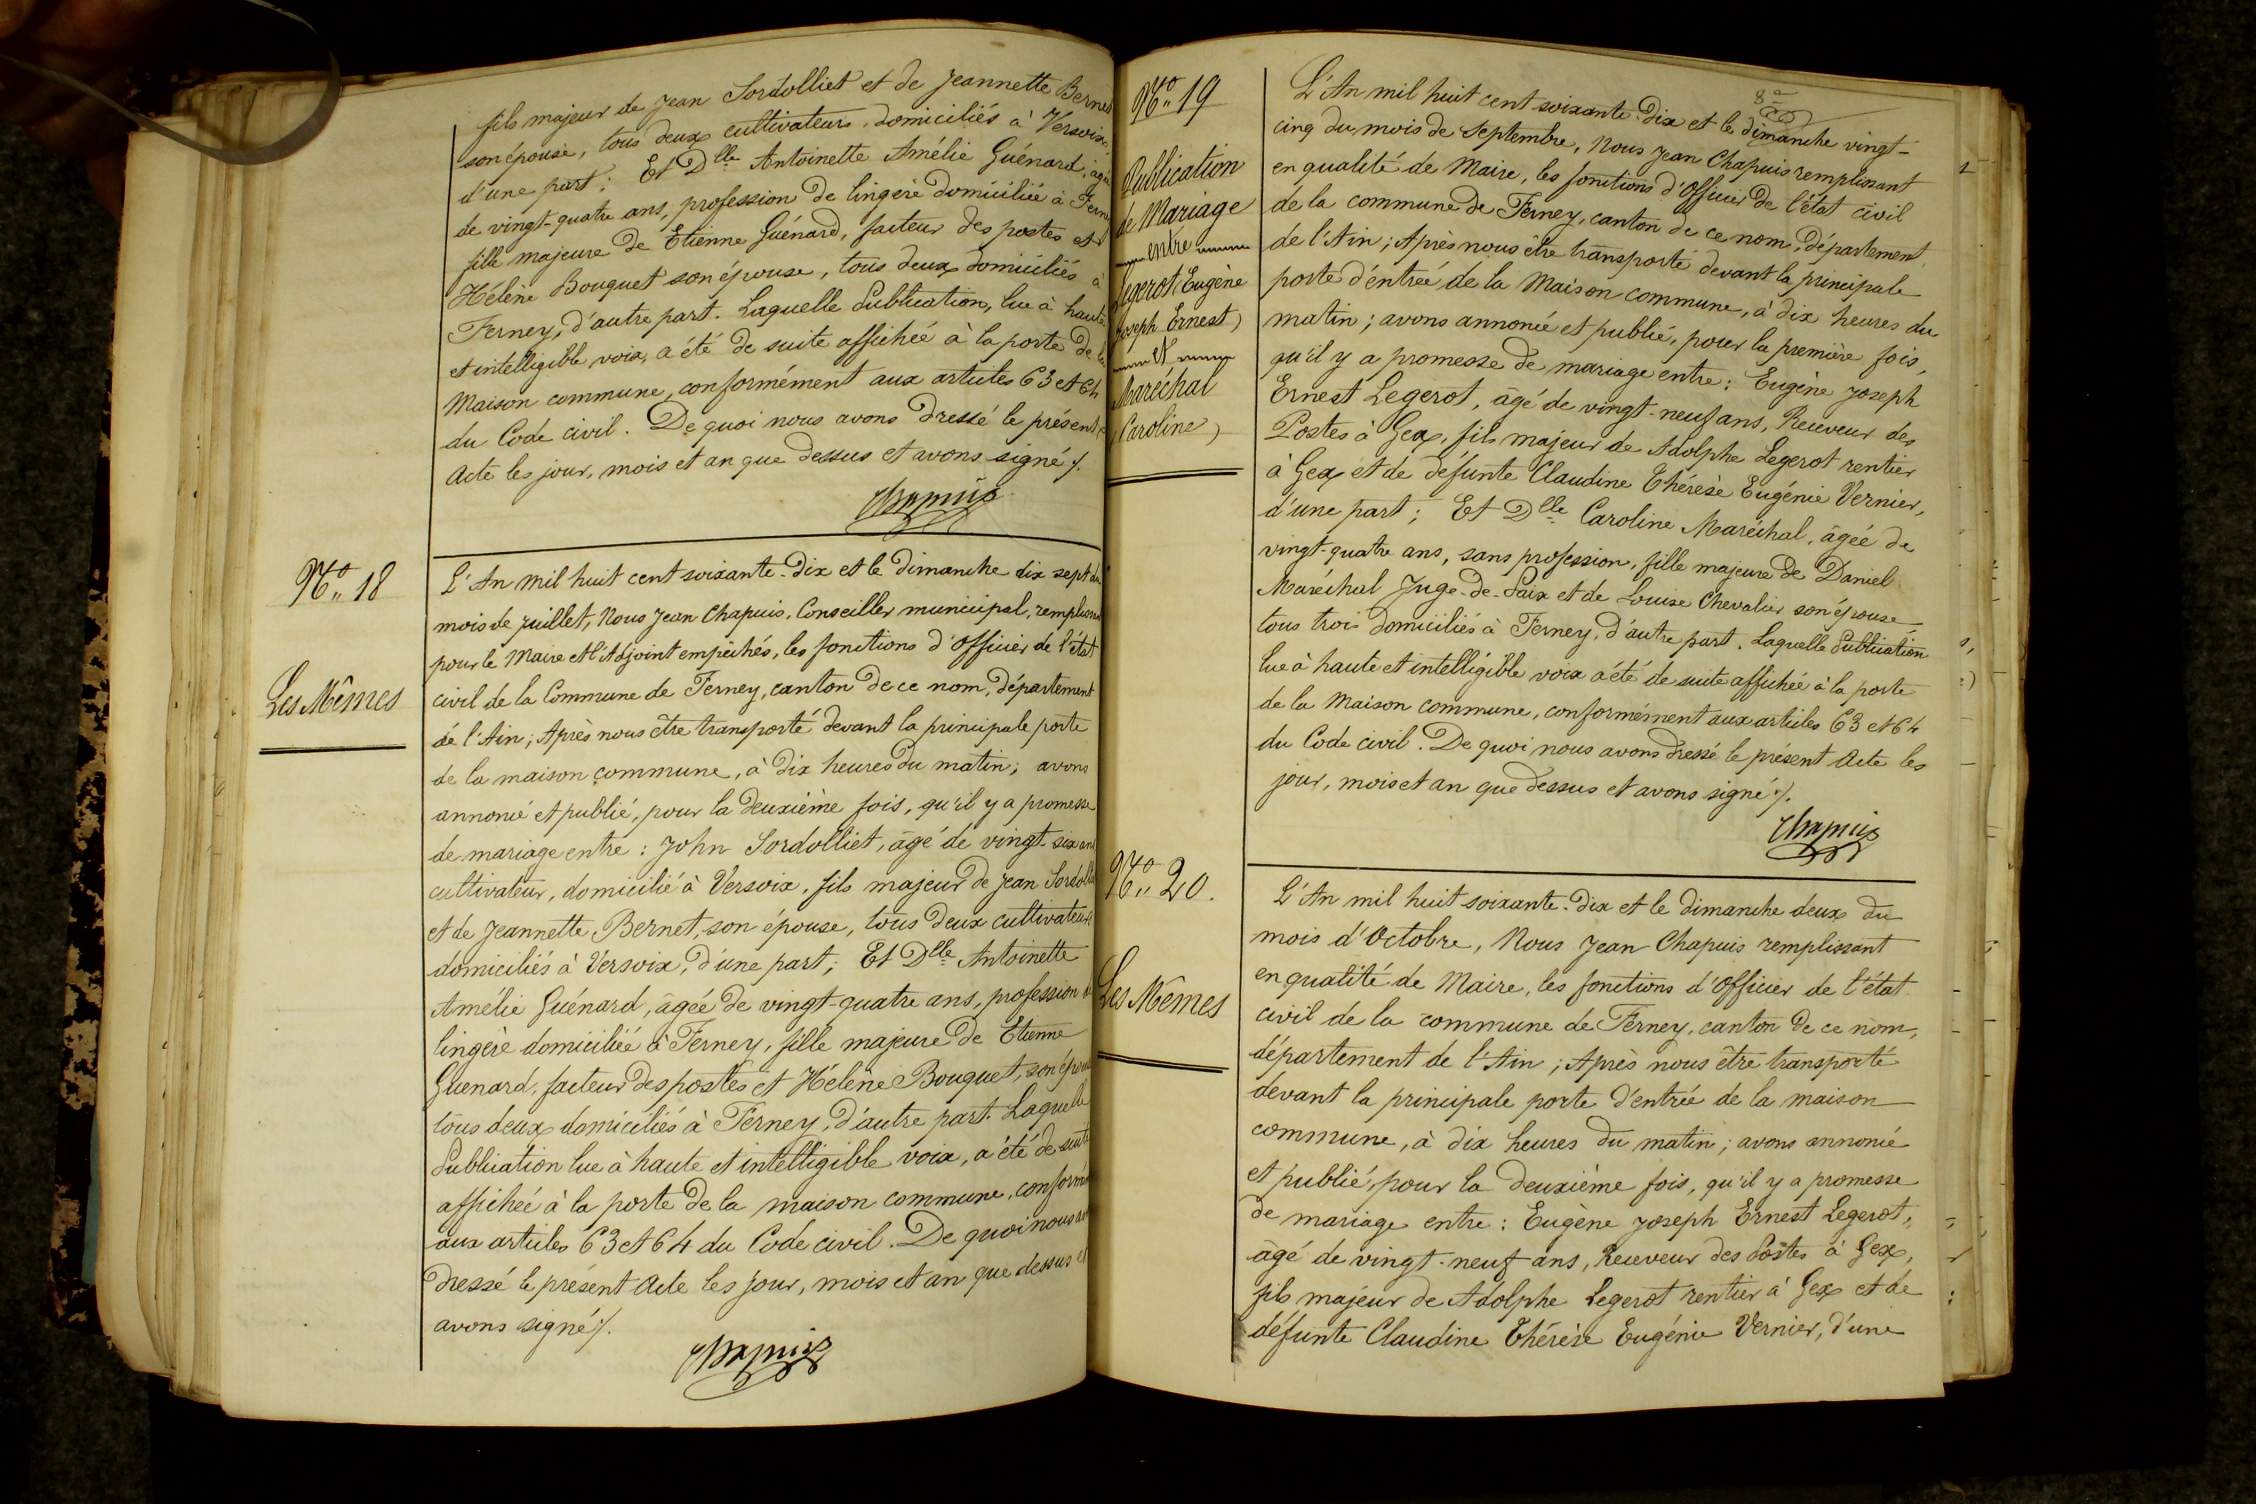 fils majeur de Jean Sordolliet et de Jeannette Bernet
son épouse, tous deux cultivateurs, domiciliés à Versoix,
d'une part; Et Dlle Antoinette Amélie Guénard, âgée
de vingt-quatre ans, profession de lingère domiciliée à Ferney
fille majeure de Etienne Guénard, facteur des postes et
Hélène Bouquet son épouse, tous deux domiciliés à
Ferney, d'autre part. Laquelle Publication, lue à haute
et intelligible voix, a été de suite affichée à la porte de la
Maison commune, conformément aux articles 63 et 64
du Code civil. De quoi nous avons dressé le présent
Acte les jour, mois et an que dessus et avons signé ./.
Chapuis
No 18
Les Mêmes
L'An mil huit cent soixante-dix et le Dimanche dix sept du
mois de Juillet, Nous Jean Chapuis, Conseiller municipal, remplissant
pour le Maire et l'Adjoint empêchés, les fonctions d'Officier de l'état
civil de la Commune de Ferney, canton de ce nom, département
de l'Ain; Après nous être transporté devant la principale porte
de la maison commune, à dix heures du matin; avons
annoncé et publié, pour la deuxième fois, qu'il y a promesse
de mariage entre: John Sordolliet, âgé de vingt-six ans
cultivateur, domicilié à Versoix, fils majeur de Jean Sordolliet
et de Jeannette Bernet, son épouse, tous deux cultivateurs
domiciliés à Versoix, d'une part; Et Dlle Antoinette
Amélie Guénard, âgée de vingt-quatre ans, profession de
lingère domiciliée à Ferney, fille majeure de Etienne
Guenard, facteur des postes et Hélène Bouquet, son épouse
tous deux domiciliés à Ferney, d'autre part. Laquelle
Publication lue à haute et intelligible voix, a été de suite
affichée à la porte de la maison commune, conformé
aux articles 63 et 64 du Code civil. De quoi nous avons
dressé le présent Acte les jour, mois et an que dessus et
avons signé ./.
Chapuis
No 19
Publication
de Mariage
entre
Legerot (Eugène
Joseph Ernest)
et
Maréchal
(Caroline)
L'An mil huit cent soixante-dix et le dimanche vingt-
cinq du mois de Septembre, Nous Jean Chapuis remplissant
en qualité de Maire, les fonctions d'Officier de l'état civil
de la commune de Ferney, canton de ce nom, département
de l'Ain; Après nous être transporté devant la principale
porte d'entrée de la Maison commune, à dix heures du
matin; avons annoncé et publié, pour la première fois,
qu'il y a promesse de mariage entre: Eugène Joseph
Ernest Legerot, âgé de vingt-neuf ans, Receveur des
Postes à Gex, fils majeur de Adolphe Legerot rentier
à Gex et de défunte Claudine Thérèse Eugénie Vernier,
d'une part; Et Dlle Caroline Maréchal, âgée de
vingt-quatre ans, sans profession, fille majeure de Daniel
Maréchal Juge-de-Paix et de Louise Chevalier son épouse
tous trois domiciliés à Ferney, d'autre part. Laquelle Publication
lue à haute et intelligible voix a été de suite affichée à la porte
de la Maison commune, conformément aux articles 63 et 64
du Code civil. De quoi nous avons dressé le présent Acte les
jour, mois et an que dessus et avons signé ./.
Chapuis
No 20.
Les Mêmes
L'An mil huit soixante-dix et le dimanche deux du
mois d'Octobre, Nous Jean Chapuis remplissant
en qualité de Maire, les fonctions d'Officier de l'état
civil de la commune de Ferney, canton de ce nom,
département de l'Ain; Après nous être transporté
devant la principale porte d'entrée de la maison
commune, à dix heures du matin; avons annoncé
et publié, pour la deuxième fois, qu'il y a promesse
de mariage entre: Eugène Joseph Ernest Legerot,
âgé de vingt-neuf ans, Receveur des Postes à Gex,
fils majeur de Adolphe Legerot rentier à Gex et de
défunte Claudine Thérèse Eugénie Vernier, d'une